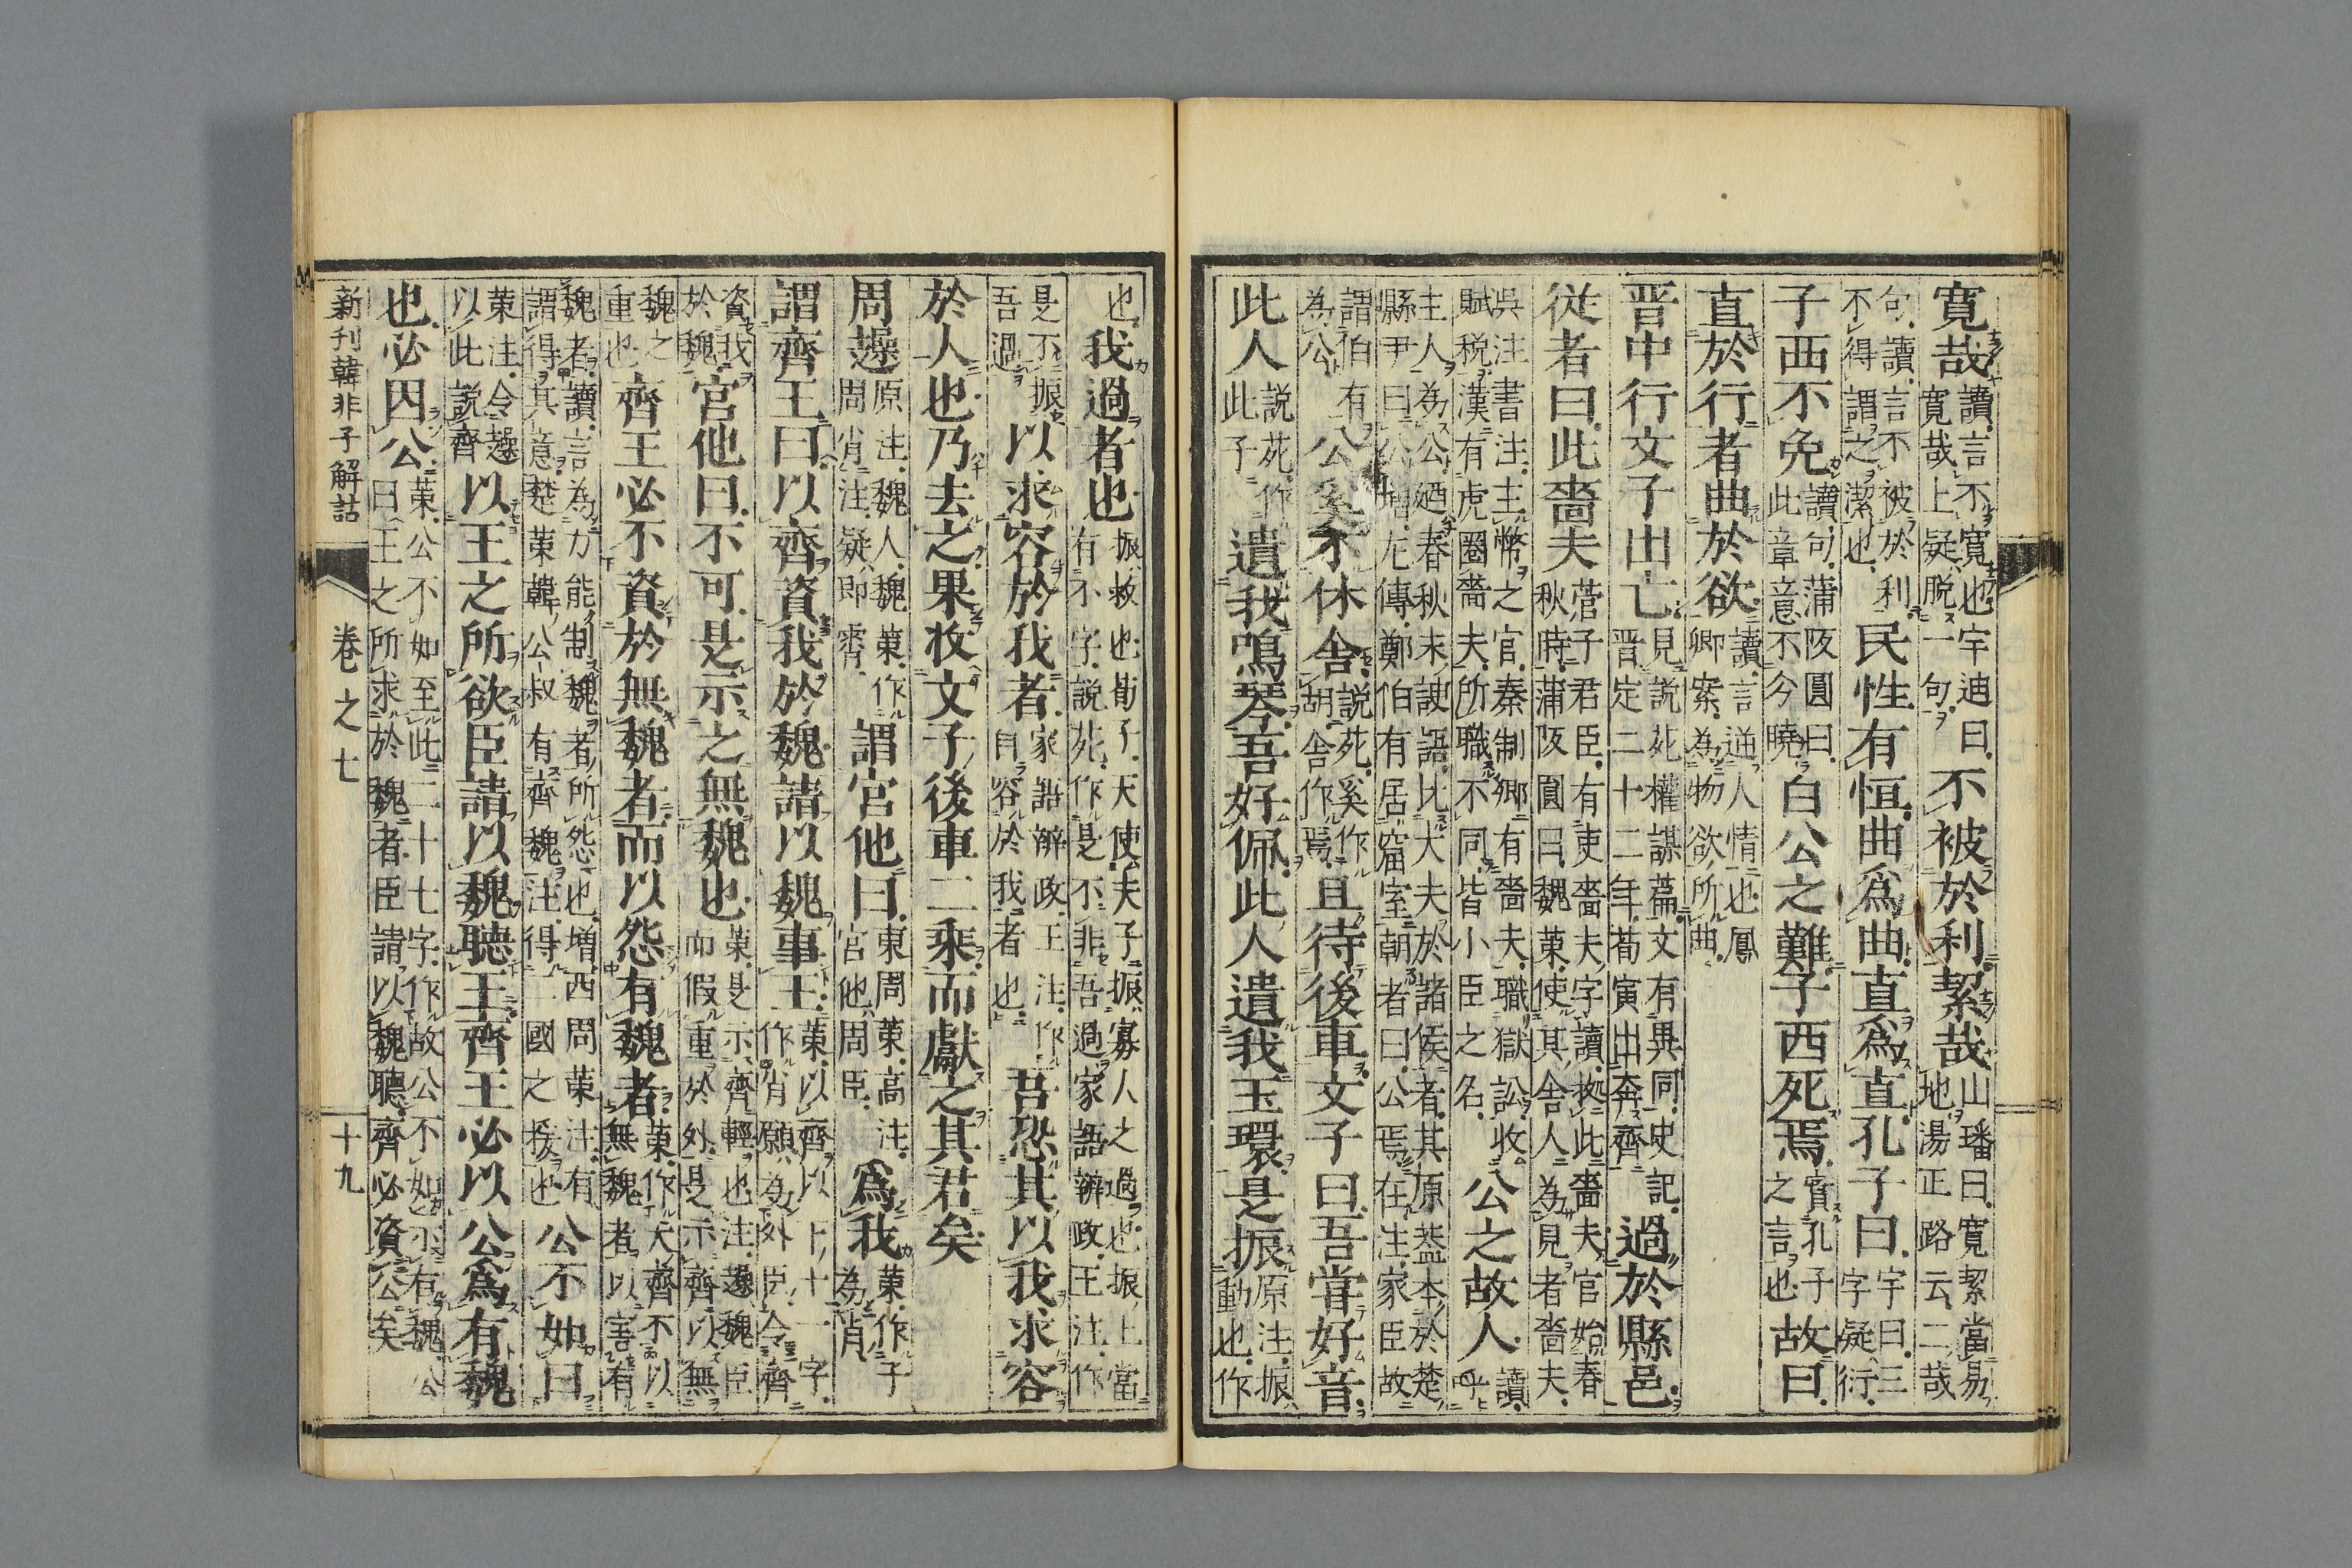 寛哉讀言不寛也宇迪曰不被於利絜哉山璠曰寛絜當易
寛哉上疑脱一句地湯正路云二哉
句讀言不被於利民性有恒曲爲曲直爲直孔子曰宇曰三
不得謂之潔也字疑衍
子西不免讀句蒲阪圓曰白公之難子西死焉實孔子故曰
此章意不今曉之言也
直於行者曲於欲讀言逆人情也鳳
卿案為物欲所曲
晋中行文子出亡見說苑權謀篇文有異同史記過於縣邑
晋定二十二年荀寅出奔齊
從者曰此嗇夫菅子君臣有吏嗇夫字讀拠此嗇夫官始春
秋時蒲阪圓曰魏策使其舎人為見者嗇夫
呉注書注主幣之官秦制鄉有嗇夫職獄訟收公之故人讀
賦税漢有虎圏嗇夫所職不同皆小臣之名乎
主人為公廼春秋末諛語比大夫於諸侯者其原葢本於楚
縣尹曰公増左傳鄭伯有居窟室朝者曰公焉在注家臣故
謂伯有公奚不休舎說苑奚作且待後車文子曰吾甞好音
為公胡舎作焉
此人說苑作遺我鳴琴吾好佩此人遺我玉環是振原注振
此子動也作
也我過者也振救也荀子天使夫子振寡人之過也振上當
有不字說苑作是不非吾過家語辨政王注作
是不振以求容於我者家語辨政王注作吾恐其以我求容
吾過自容於我者也
於人也乃去之果收文子後車二乘而獻之其君矣
周趮原注魏人魏策作謂官他曰東周策高注爲我策作子
周肖注疑即霄宮他周臣為肖
謂齊王曰以齊資我於魏請以魏事王策以齊以下十一字
作肖願為外臣令齊
資我宮他曰不可是示之無魏也策是示齊輕也注趮魏臣
於魏而假重於外是示齊以無
魏之齊王必不資於無魏者而以怨有魏者策作夫齊不以
重也無魏者以害有
魏者讀言為力能制魏者所怨也増西周策注有公不如曰
謂得其意楚策韓公叔有齊魏注得二國之援也
策注令趮以王之所欲臣請以魏聽王齊王必以公爲有魏
以此說齊
也必因公策公不如至此二十七字作故公不如示有魏公
曰王之所求於魏者臣請以魏聽齊必資公矣
新刊韓非子解詁 卷之七 十九